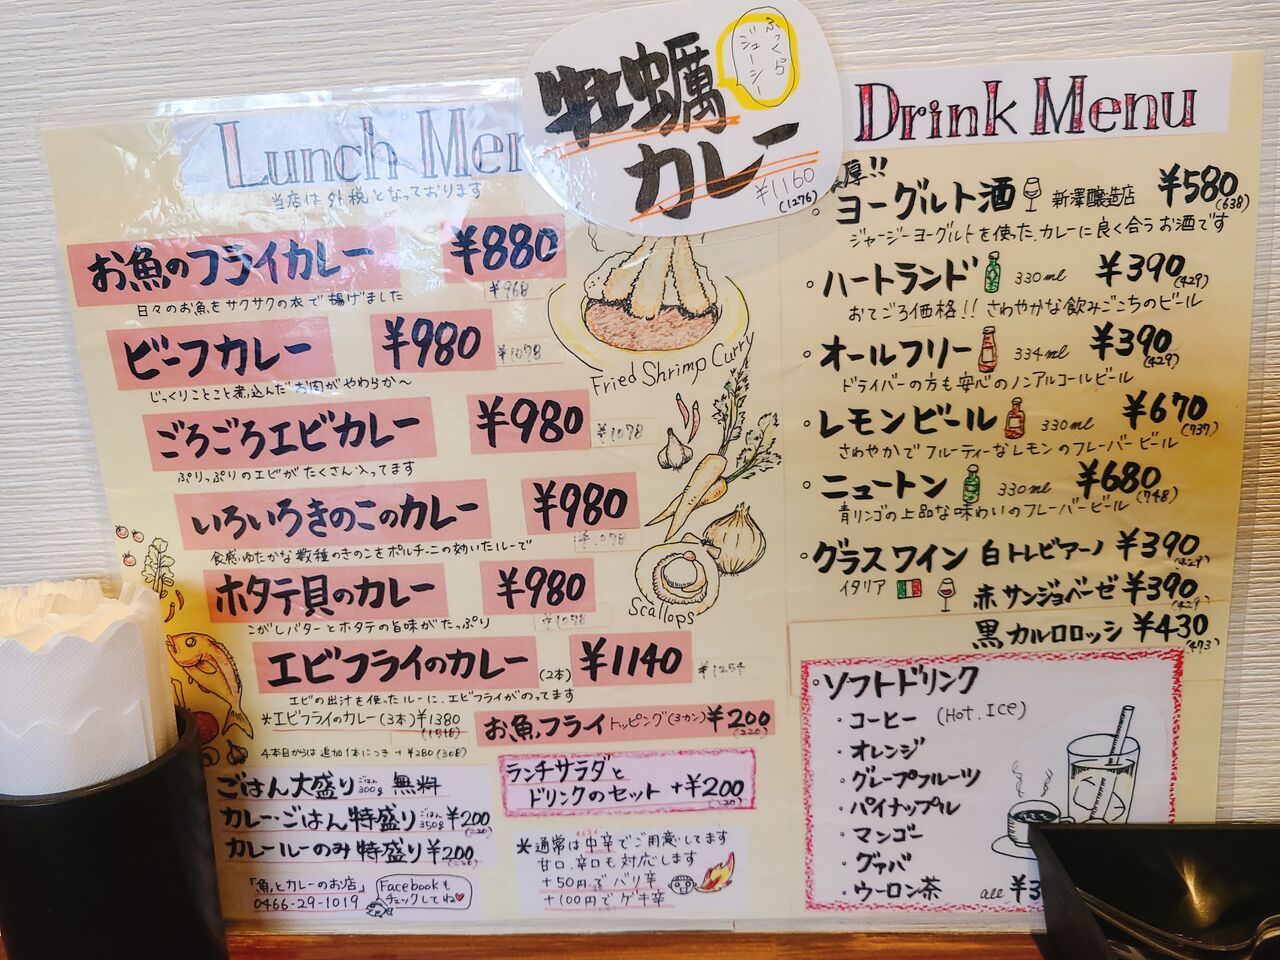 ふっくら
ジューシー
牡蠣
カレー
¥1160
(1276)
Lunch Men
当店は外税となっております
お魚のフライカレー ¥880
¥968
日々のお魚をサクサクの衣で揚げました
ビーフカレー ¥980
¥1078
じっくりことこと煮込んだお肉がやわらか〜
ごろごろエビカレー ¥980
¥1078
ぷりっぷりのエビがたくさん入ってます
いろいろきのこのカレー ¥980
¥1078
食感ゆたかな数種のきのこをポルチーニの効いたルーで
ホタテ貝のカレー ¥980
¥1078
こがしバターとホタテの旨味がたっぷり
エビフライのカレー (2本) ¥1140
¥1254
エビの出汁を使ったルーに、エビフライがのってます
*エビフライのカレー(3本)¥1380
(1518)
4本目からは追加1本につき+¥280(308)
お魚フライ トッピング(3カン) ¥200
(220)
ごはん大盛り ごはん300g 無料
カレー・ごはん特盛り ごはん350g ¥200
(220)
カレールーのみ特盛り ¥200
(220)
ランチサラダと
ドリンクのセット +¥200
(220)
「魚とカレーのお店」
0466-29-1019
Facebookも
チェックしてね
*通常は中辛でご用意してます
甘口、辛口も対応します
+50円でバリ辛
+100円でゲキ辛
Fried Shrimp Curry
Scallops
Drink Menu
厚!!
・ヨーグルト酒 新澤醸造店 ¥580
(638)
ジャージーヨーグルトを使った、カレーに良く合うお酒です
・ハートランド 330ml ¥390
(429)
おてごろ価格!! さわやかな飲みごこちのビール
・オールフリー 334ml ¥390
(429)
ドライバーの方も安心のノンアルコールビール
・レモンビール 330ml ¥670
(737)
さわやかでフルーティーなレモンのフレーバービール
・ニュートン 330ml ¥680
(748)
青リンゴの上品な味わいのフレーバービール
・グラスワイン 白 トレビアーノ ¥390
(429)
イタリア 赤 サンジョベーゼ ¥390
(429)
黒 カルロロッシ ¥430
(473)
・ソフトドリンク
・コーヒー (Hot. Ice)
・オレンジ
・グレープフルーツ
・パイナップル
・マンゴー
・グァバ
・ウーロン茶 all ¥3